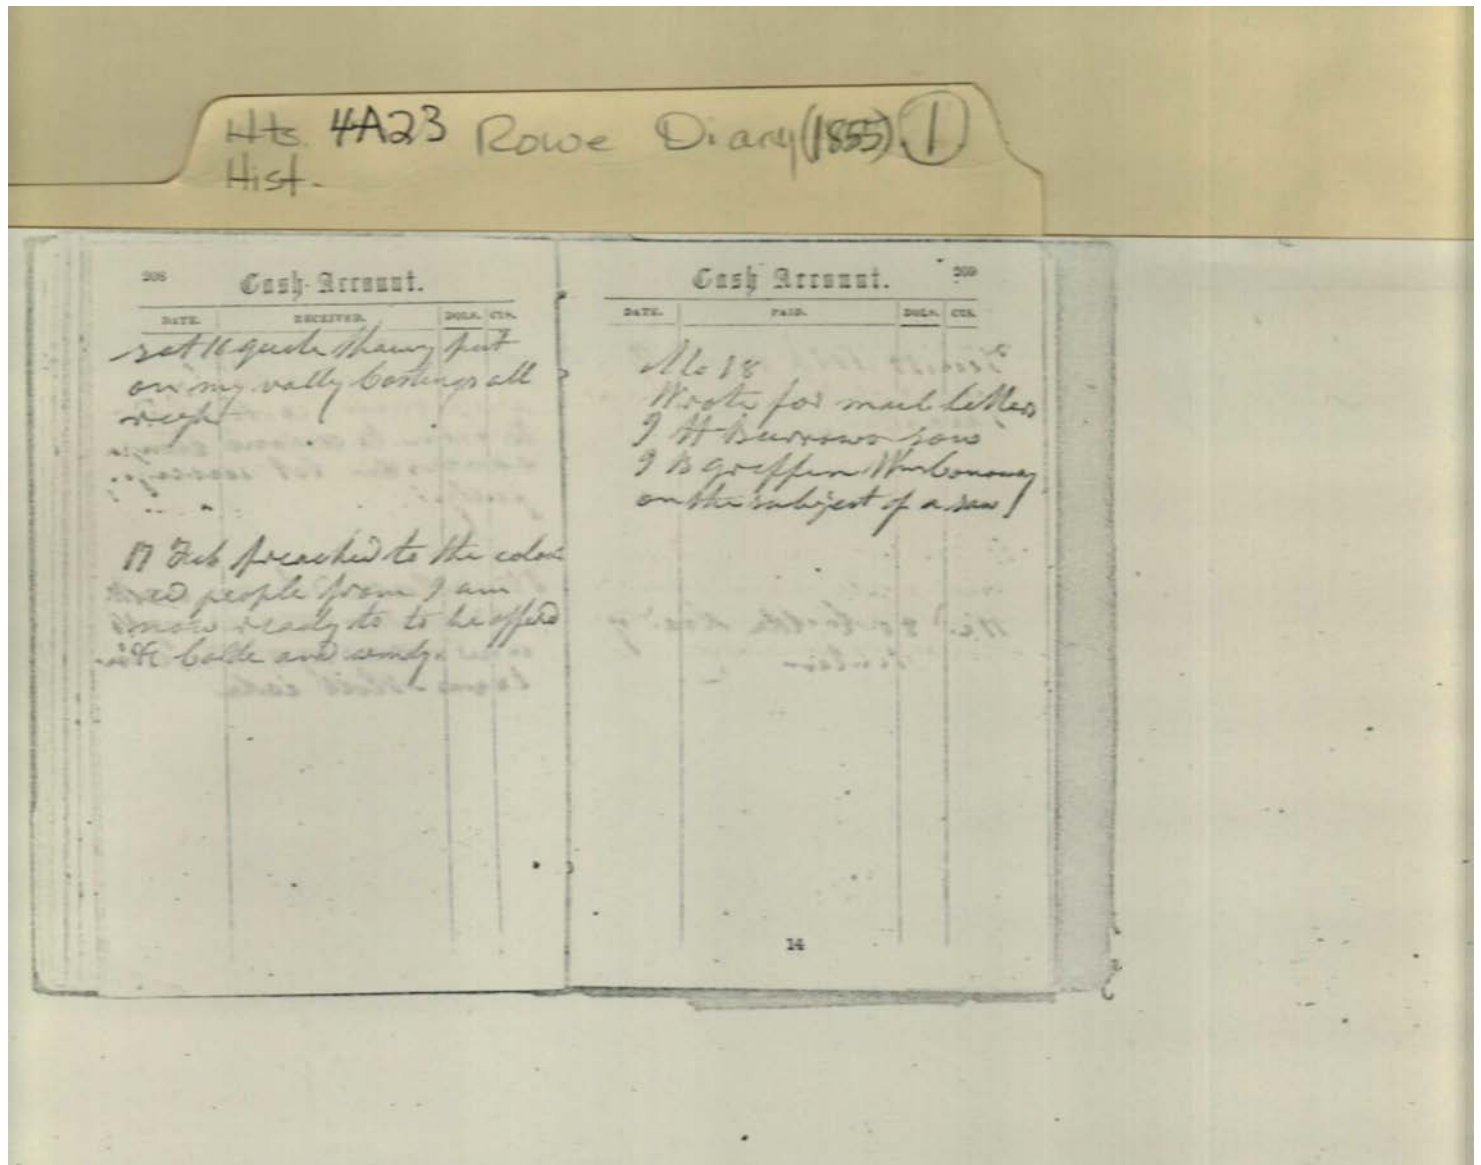 Hts. 4A23 Rowe Diary (1855) 1
Hist.
208 Cash Account.
DATE. RECEIVED. DOLS. CTS.
sat 16 put
on my vally Castings all
17 Feb preached to the colou
red people from I am
now ready to to be offerd
&c Colde and windy.
Cash Account. 209
DATE. PAID. DOLS. CTS.
Mo 18
Wrote for mail letters
J H Burrows
J B Griffin Wm
on the subject of a saw
14